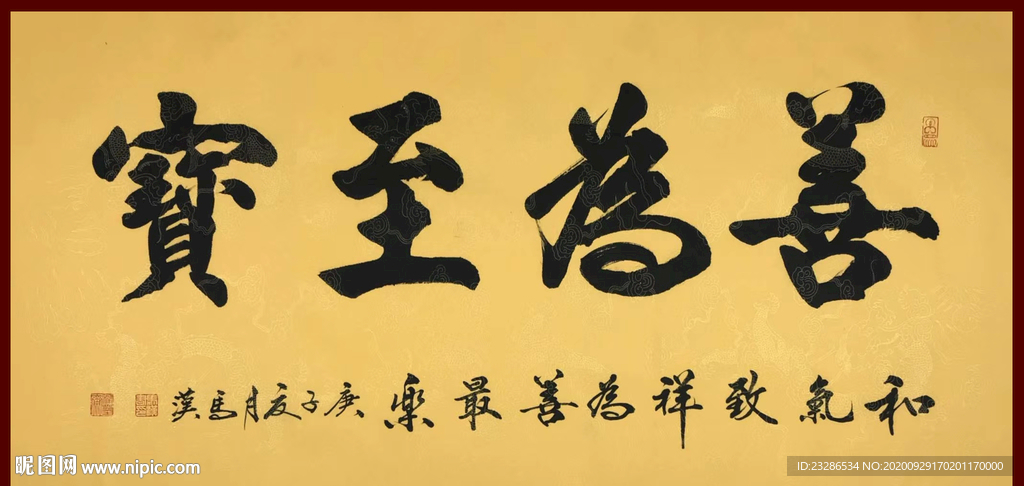 善為至寶
和氣致祥為善最樂 庚子夏月馬漢
昵图网 www.nipic.com
ID:23286534 NO:20200929170201170000